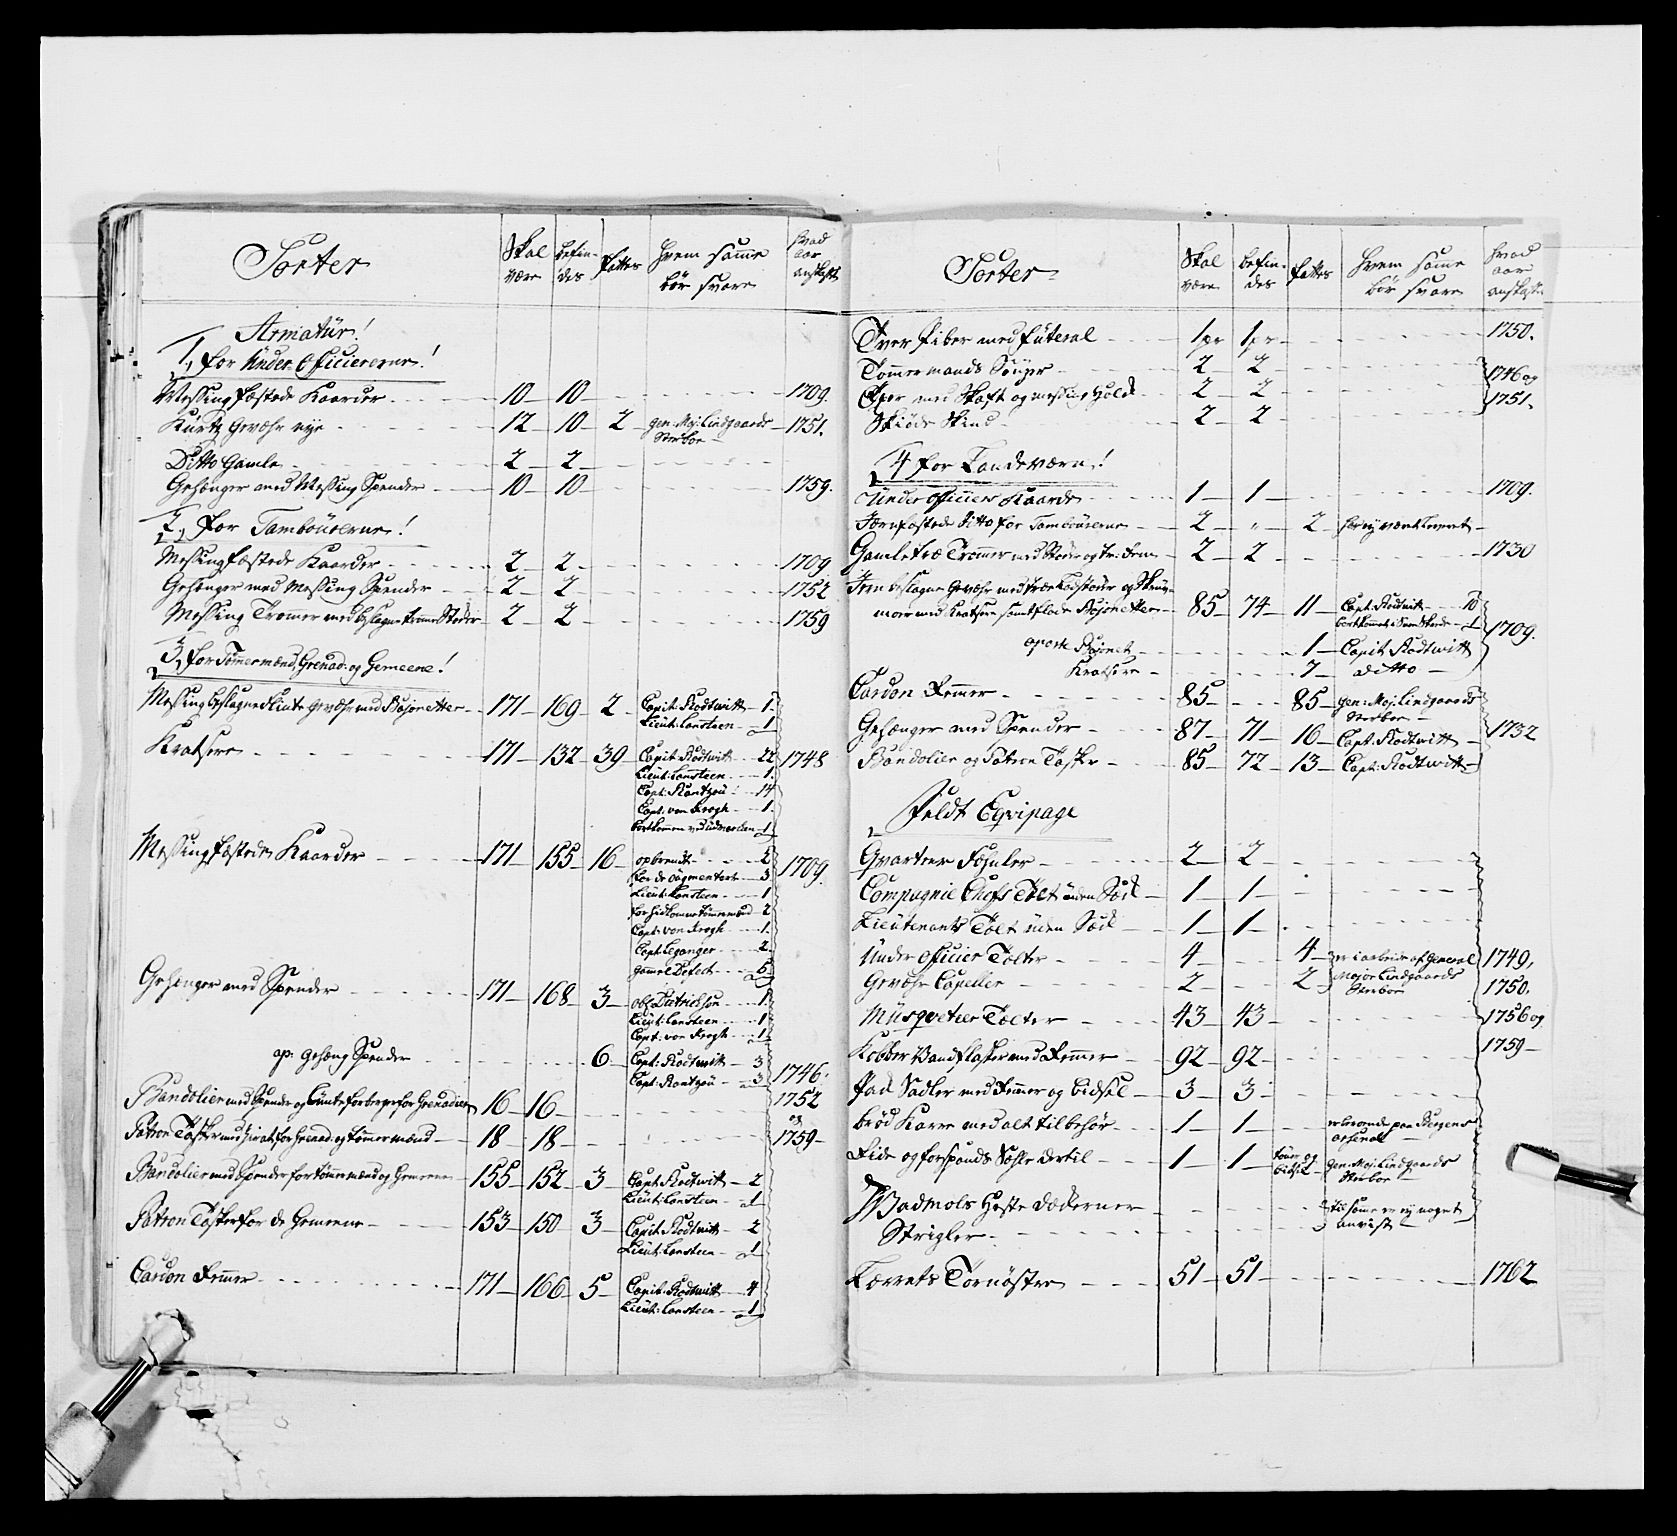 Sorter | Skal være | befindes | fattes | hvem samme bör svare | hvad aar anskafte
Armatür!
1, for Under Officiererne!
Messing fæstede Kaarder | 10 | 10 | 1709
Kurtz Gevæhr nÿe | 12 | 10 | 2 | Gen: Maj: Lindgaards Sterboe | 1751.
Ditto Gamle | 2 | 2
Gehænger med Messing Spender | 10 | 10 | 1759.
2, for Tambourerne!
Messingfæstede Kaarder | 2 | 2 | 1709
Gehænger med Messing Spender | 2 | 2 | 1752
Messing Trommer med beslagne tromme Stoker | 2 | 2 | 1759
3, for Tömmermænd, Grenad: og Gemeene!
Messing beslagne Flinte gevæhr med Bajonetter | 171 | 169 | 2 | Capt: Rodtwitt 1
Lieut: Lansteen 1
Kratsere | 171 | 132 | 39 | Capit: Rodtwitt 22 | 1748
Lieut: Lansteen 1.
Capt: Rantzou 14
Capt: von Krogh 1.
bortkommen ved 1
Messing fæstede Kaarder | 171 | 155 | 16 | opbrendt 2 | 1709.
for de augmenterte 3
Lieut: Lansteen 1
Tömmermænd 2
Capt: von Krogh 1.
Capt: Leganger 2
gamel Defect 5
Gehænger med Spender | 171 | 168 | 3 | Obl: Dietrichson 1
Lieut: Lansteen 1
Capt: von Krogh 1
ap: Gehæng Spender | 6 | Capt: Rodtwitt 3
Capt: Rantzou 3 | 1746.
Bandolier med Spender og Lunteforberger for Grenaderer | 16 | 16 | 1752 og
Patron Tasker med for Grenad: og tömmermænd | 18 | 18 | 1759
Bandolier med Spender for tömmermænd og Gemeene | 155 | 152 | 3 | Capt: Rodtwitt 2
Lieut: Lansteen 1
Patron Tasker for de Gemeene | 153 | 150 | 3 | Capit: Rodtwitt 2
Lieut: Lansteen 1
Cardon Remmer | 171 | 166 | 5 | Capit: Rodtwitt 4
Lieut: Lansteen 1
Sorter | Skal være | befindes | fattes | hvem samme bör svare | hvad aar anskafte
Tver Piber med futeral | 1 pr | 1 pr | 1750.
Tömmermands | 2 | 2 | 1746 og
Öxer med Skaft og messing Huld | 2 | 2 | 1751.
Skiöde Skind | 2 | 2
4 for Landeværn!
Under Officier Kaarde | 1 | 1 | 1709.
Jernfæstede Ditto for Tambourerne | 2 | " | 2 | har ej været leveret
Gamle træ Trommer med Stoke og tr: Rem | 2 | 2 | 1730
Jern beslagne Gevæhr med træe Ladstokker og
med Kratsere samt flade Bajonetter | 85 | 74 | 11 | Capt: Rodtwitt 10
bortkommet 1 | 1709.
aparte Bajonet | 1 | Capit Rodtwitt
Kratsere | 7 | Ditto
Cardon Remmer | 85 | 85 | Gen: Maj: Lindgaards Sterboe
Gehænger med Spender | 87 | 71 | 16 | Capt: Rodtwitt | 1732
Bandolier og Patron Taske | 85 | 72 | 13 | Capt: Rodtwitt
Feldt Eqvipage
Qvarteer Fahnler | 2 | 2
Compagnie Chefs Tælt uden Sæk | 1 | 1
Lieutenants Tælt uden Sæk | 1 | 1
Under Officier Tælter | 4 | 4 | er i arbeide af General | 1749,
Gevæhr Capeller | 2 | 2 | Major Lindgaards Sterboe | 1750.
Musqveteer Tælter | 43 | 43 | 1756 og
Kobber Vandflasker med Remmer | 92 | 92 | 1759
Pak Sadler med Remmer og bidsel | 3 | 3
bröd Karre med alt tilbehör | 1 | 1 | beroende paa Bergens arsenal
Ride og forspands Sæhle dertil | 1 | 1 | Töm og bidsel | Gen: Maj: Lindgaards Sterboe
Wadmols Heste Dækkener | til same er ej noget
Strigler | anvist
Lærrets Tornöster | 51 | 51 | 1762